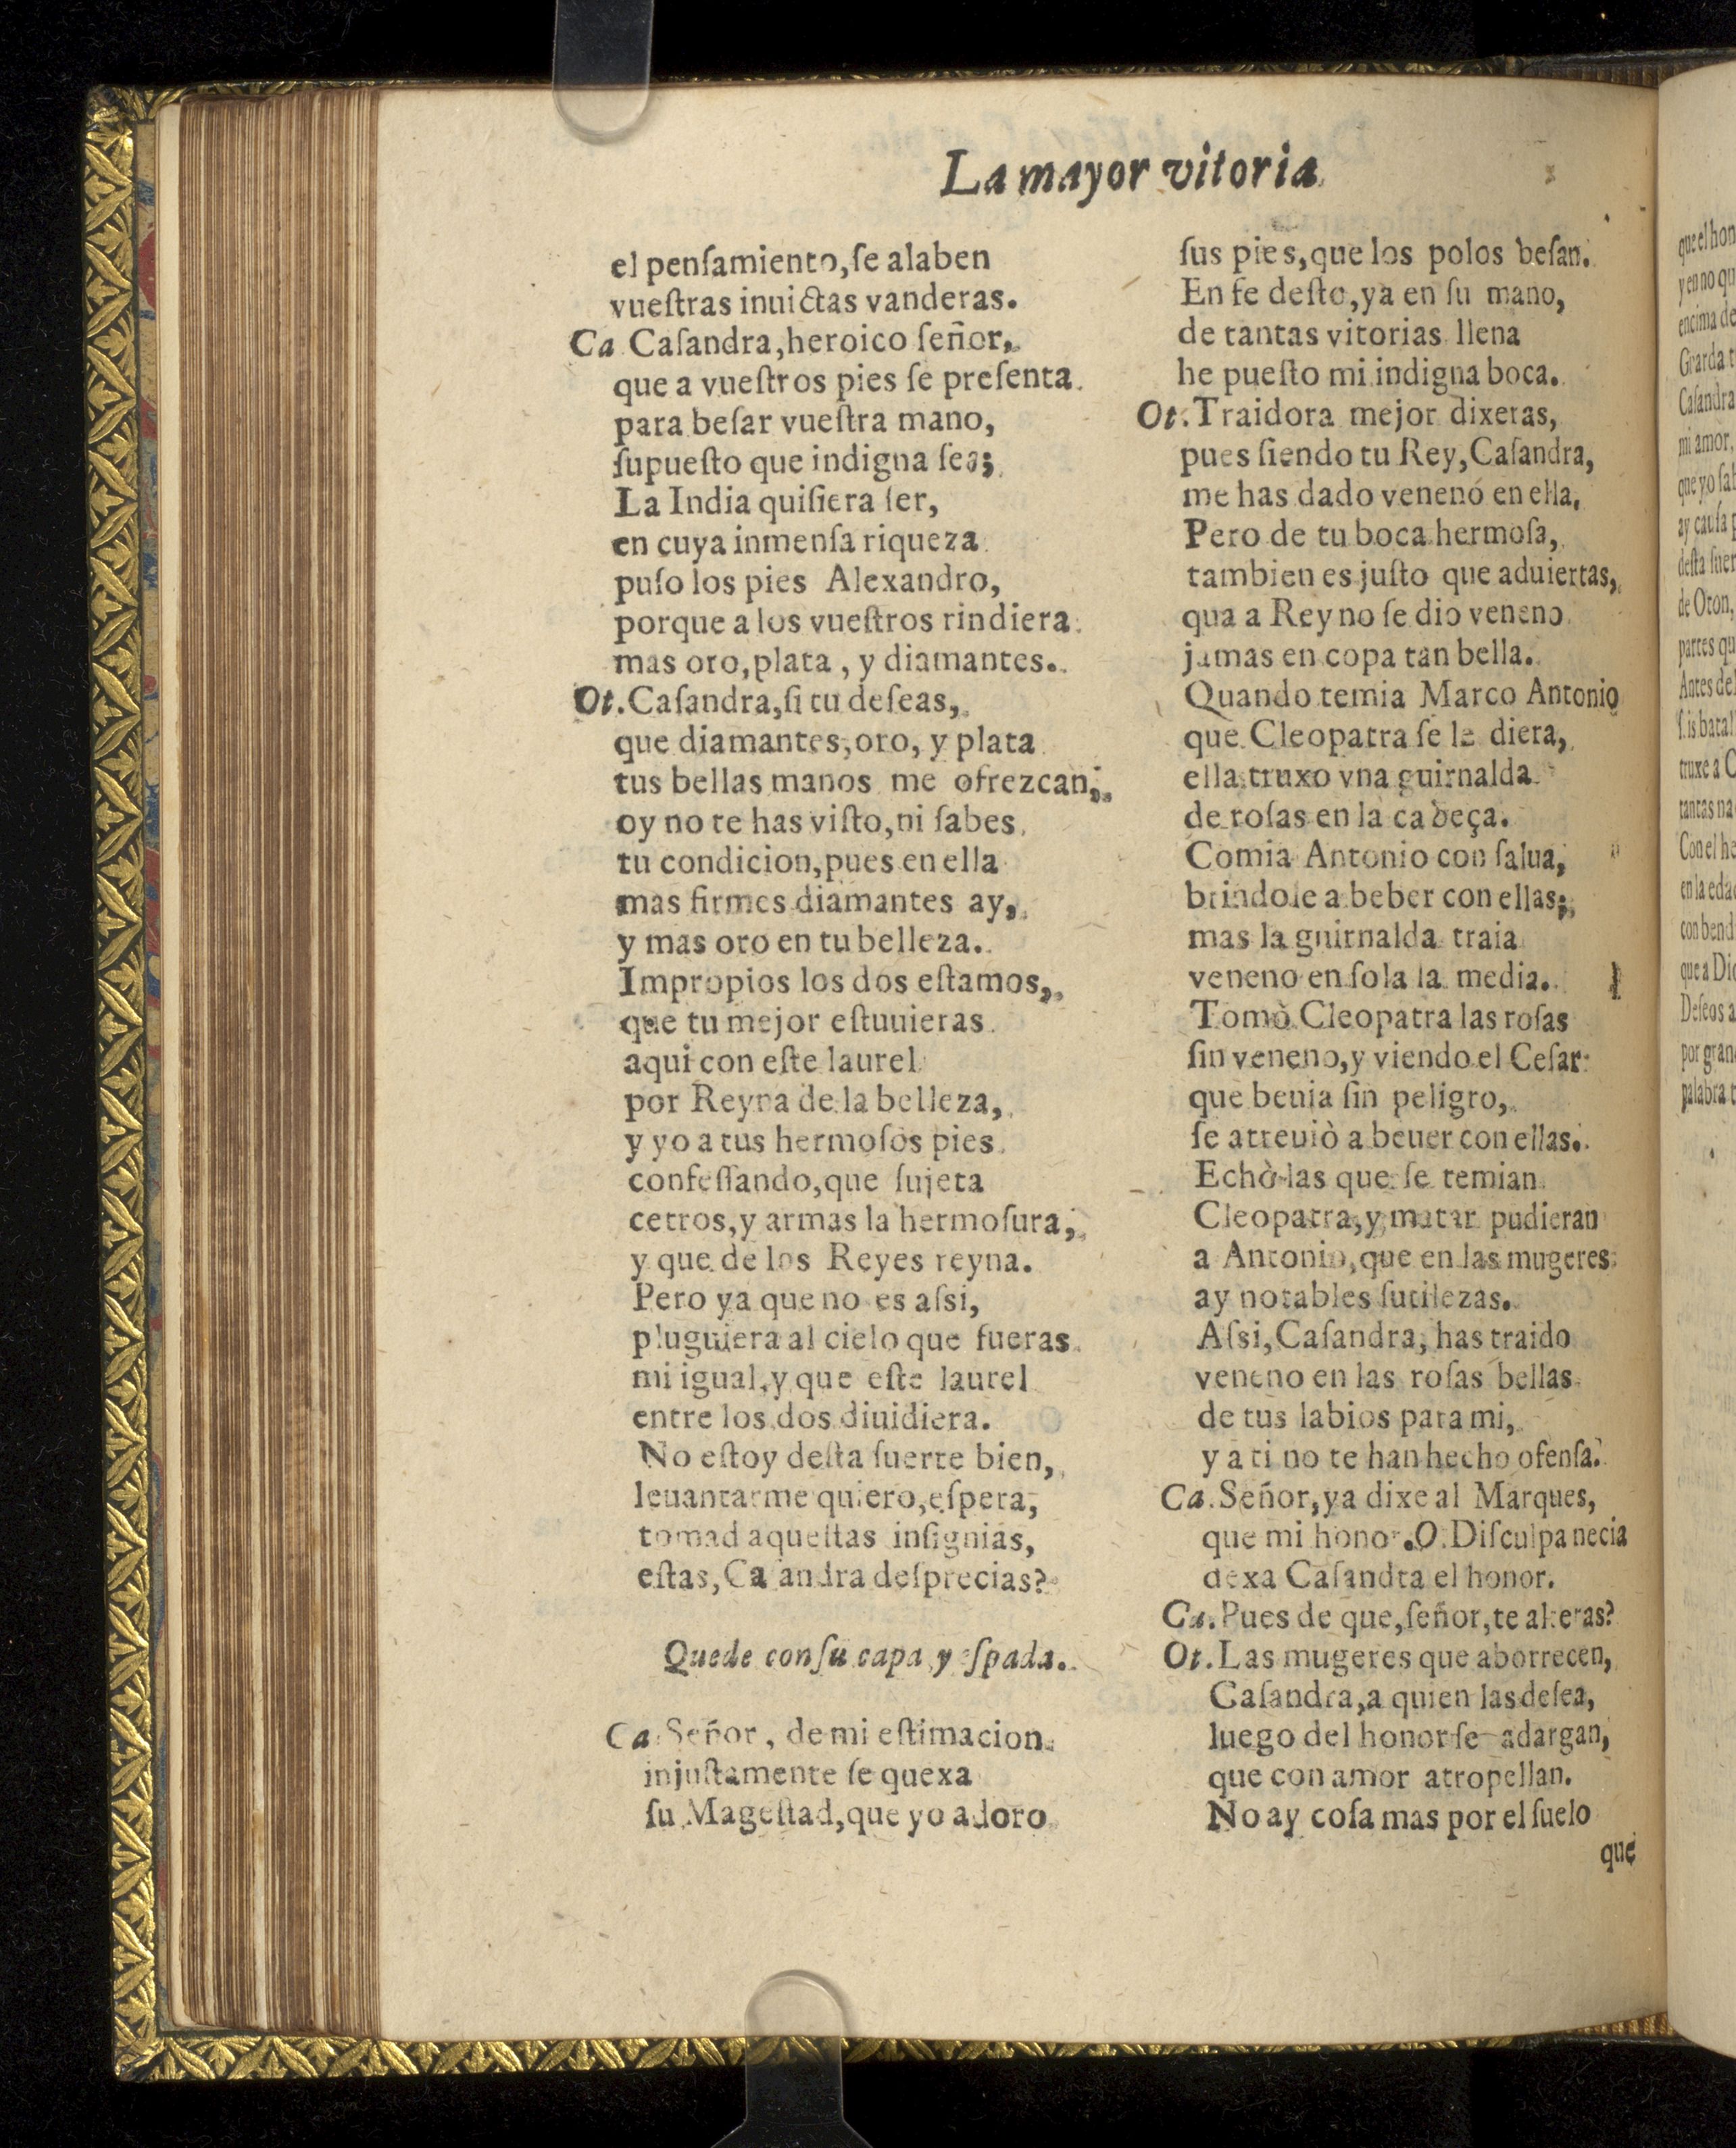 La mayor vitoria
el penſamiento, ſe alaben
vueſtras inuictas vanderas.
Ca Caſandra, heroico ſeñor,
que a vueſtros pies ſe preſenta
para beſar vueſtra mano,
ſupueſto que indigna ſea;
La India quiſiera ſer,
en cuya inmenſa riqueza
puſo los pies Alexandro,
porque a los vueſtros rindiera
mas oro, plata, y diamantes.
Ot. Caſandra, ſi tu deſeas,
que diamantes, oro, y plata
tus bellas manos me ofrezcan,
oy no te has viſto, ni ſabes
tu condicion, pues en ella
mas firmes diamantes ay,
y mas oro en tu belleza.
Impropios los dos eſtamos,
que tu mejor eſtuuieras
aqui con eſte laurel
por Reyna de la belleza,
y yo a tus hermoſos pies
confeſſando, que ſujeta
cetros, y armas la hermoſura,
y que de los Reyes reyna.
Pero ya que no es aſsi,
pluguiera al cielo que fueras
mi igual, y que eſte laurel
entre los dos diuidiera.
No eſtoy deſta ſuerte bien,
leuantarme quiero, eſpera,
tomad aqueſtas inſignias,
eſtas, Caſandra deſprecias?
Quede con ſu capa y eſpada.
Ca Señor, de mi eſtimacion
injuſtamente ſe quexa
ſu Mageſtad, que yo adoro
ſus pies, que los polos beſan.
En fe deſto, ya en ſu mano,
de tantas vitorias llena
he pueſto mi indigna boca.
Ot. Traidora mejor dixeras,
pues ſiendo tu Rey, Caſandra,
me has dado veneno en ella,
Pero de tu boca hermoſa,
tambien es juſto que aduiertas,
qua a Rey no ſe dio veneno
jamas en copa tan bella.
Quando temia Marco Antonio
que Cleopatra ſe le diera,
ella truxo vna guirnalda
de roſas en la cabeça.
Comia Antonio con ſalua,
brindole a beber con ellas;
mas la guirnalda traia
veneno en ſola la media.
Tomò Cleopatra las roſas
ſin veneno, y viendo el Ceſar
que beuia ſin peligro,
ſe atreuiò a beuer con ellas.
Echò las que ſe temian
Cleopatra, y matar pudieran
a Antonio, que en las mugeres
ay notables ſutilezas.
Aſsi, Caſandra, has traido
veneno en las roſas bellas
de tus labios para mi,
y a ti no te han hecho ofenſa.
Ca. Señor, ya dixe al Marques,
que mi honor. O. Diſculpa necia
dexa Caſandra el honor.
Ca. Pues de que, ſeñor, te alteras?
Ot. Las mugeres que aborrecen,
Caſandra, a quien las deſea,
luego del honor ſe adargan,
que con amor atropellan.
No ay coſa mas por el ſuelo
que